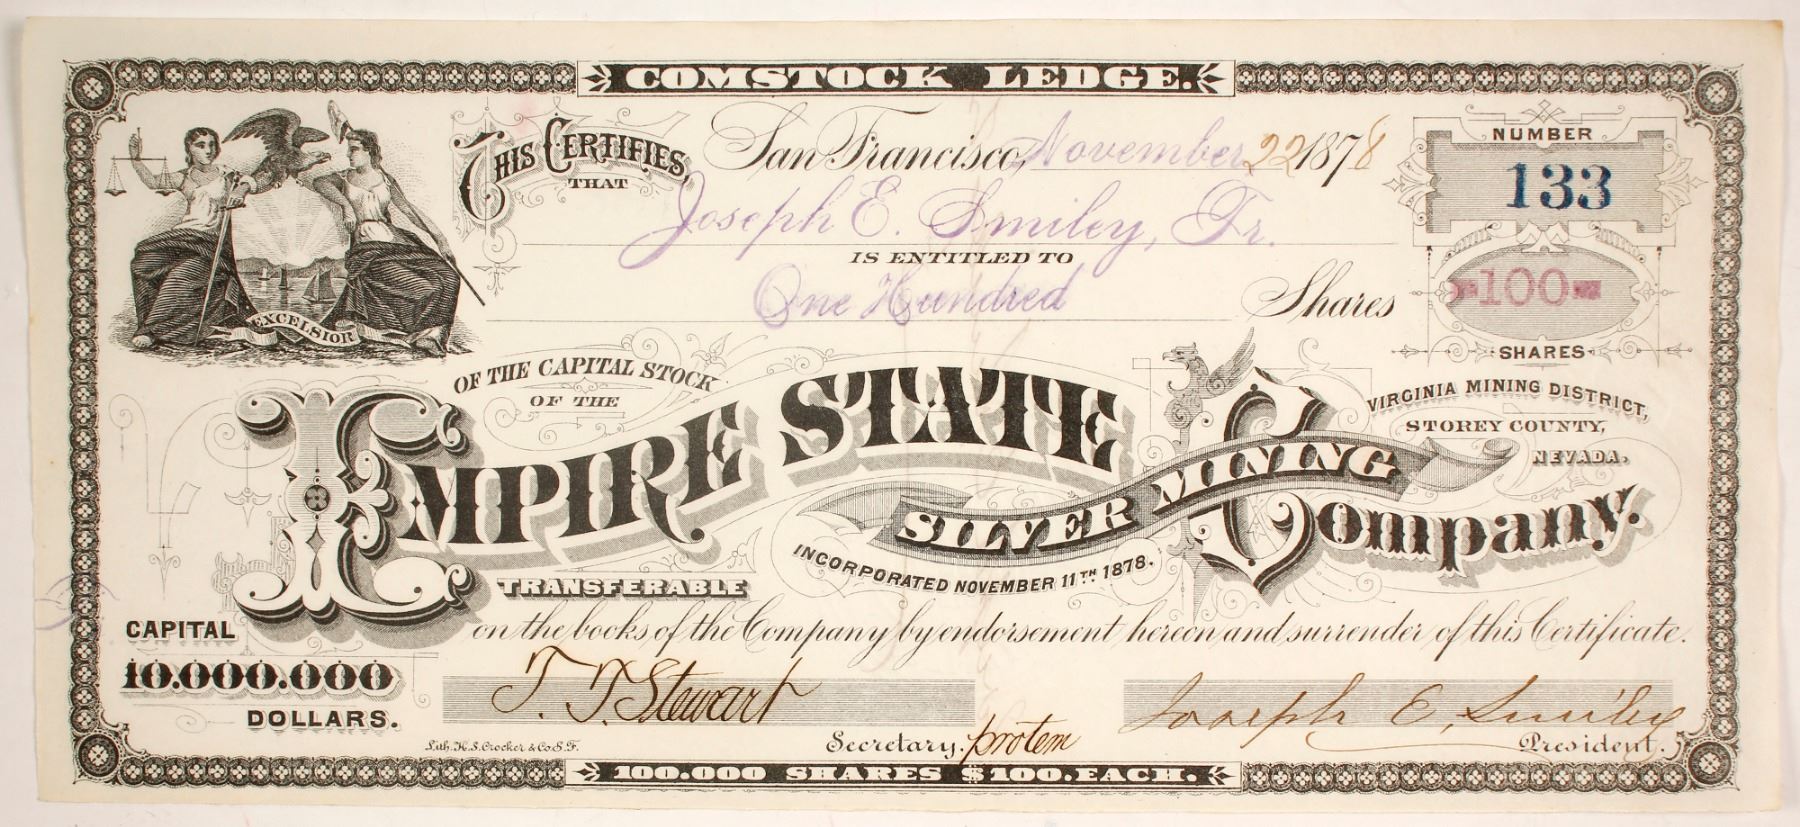 COMSTOCK LEDGE.
THIS CERTIFIES, THAT
San Francisco, November 22 1878
NUMBER
133
Joseph E. Smiley, Tr.
IS ENTITLED TO
One Hundred Shares
100
SHARES
EXCELSIOR
OF THE CAPITAL STOCK
OF THE
EMPIRE STATE
SILVER MINING
Company.
VIRGINIA MINING DISTRICT,
STOREY COUNTY,
NEVADA.
INCORPORATED NOVEMBER 11TH 1878.
TRANSFERABLE
on the books of the Company by endorsement hereon and surrender of this Certificate.
CAPITAL
10.000.000
DOLLARS.
T. T. Stewart
Secretary. protem
Joseph E. Smiley
President.
Lith. H.S. Crocker & Co. S.F.
100.000 SHARES $100. EACH.